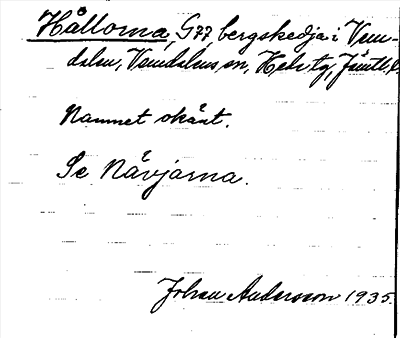 Hållorna, G77, bergskedja i Vem-
dalen, Vemdalens sn, Hede tg, Jämtl. l.
Namnet okänt.
Se Nåvjarna.
Johan Andersson 1935.